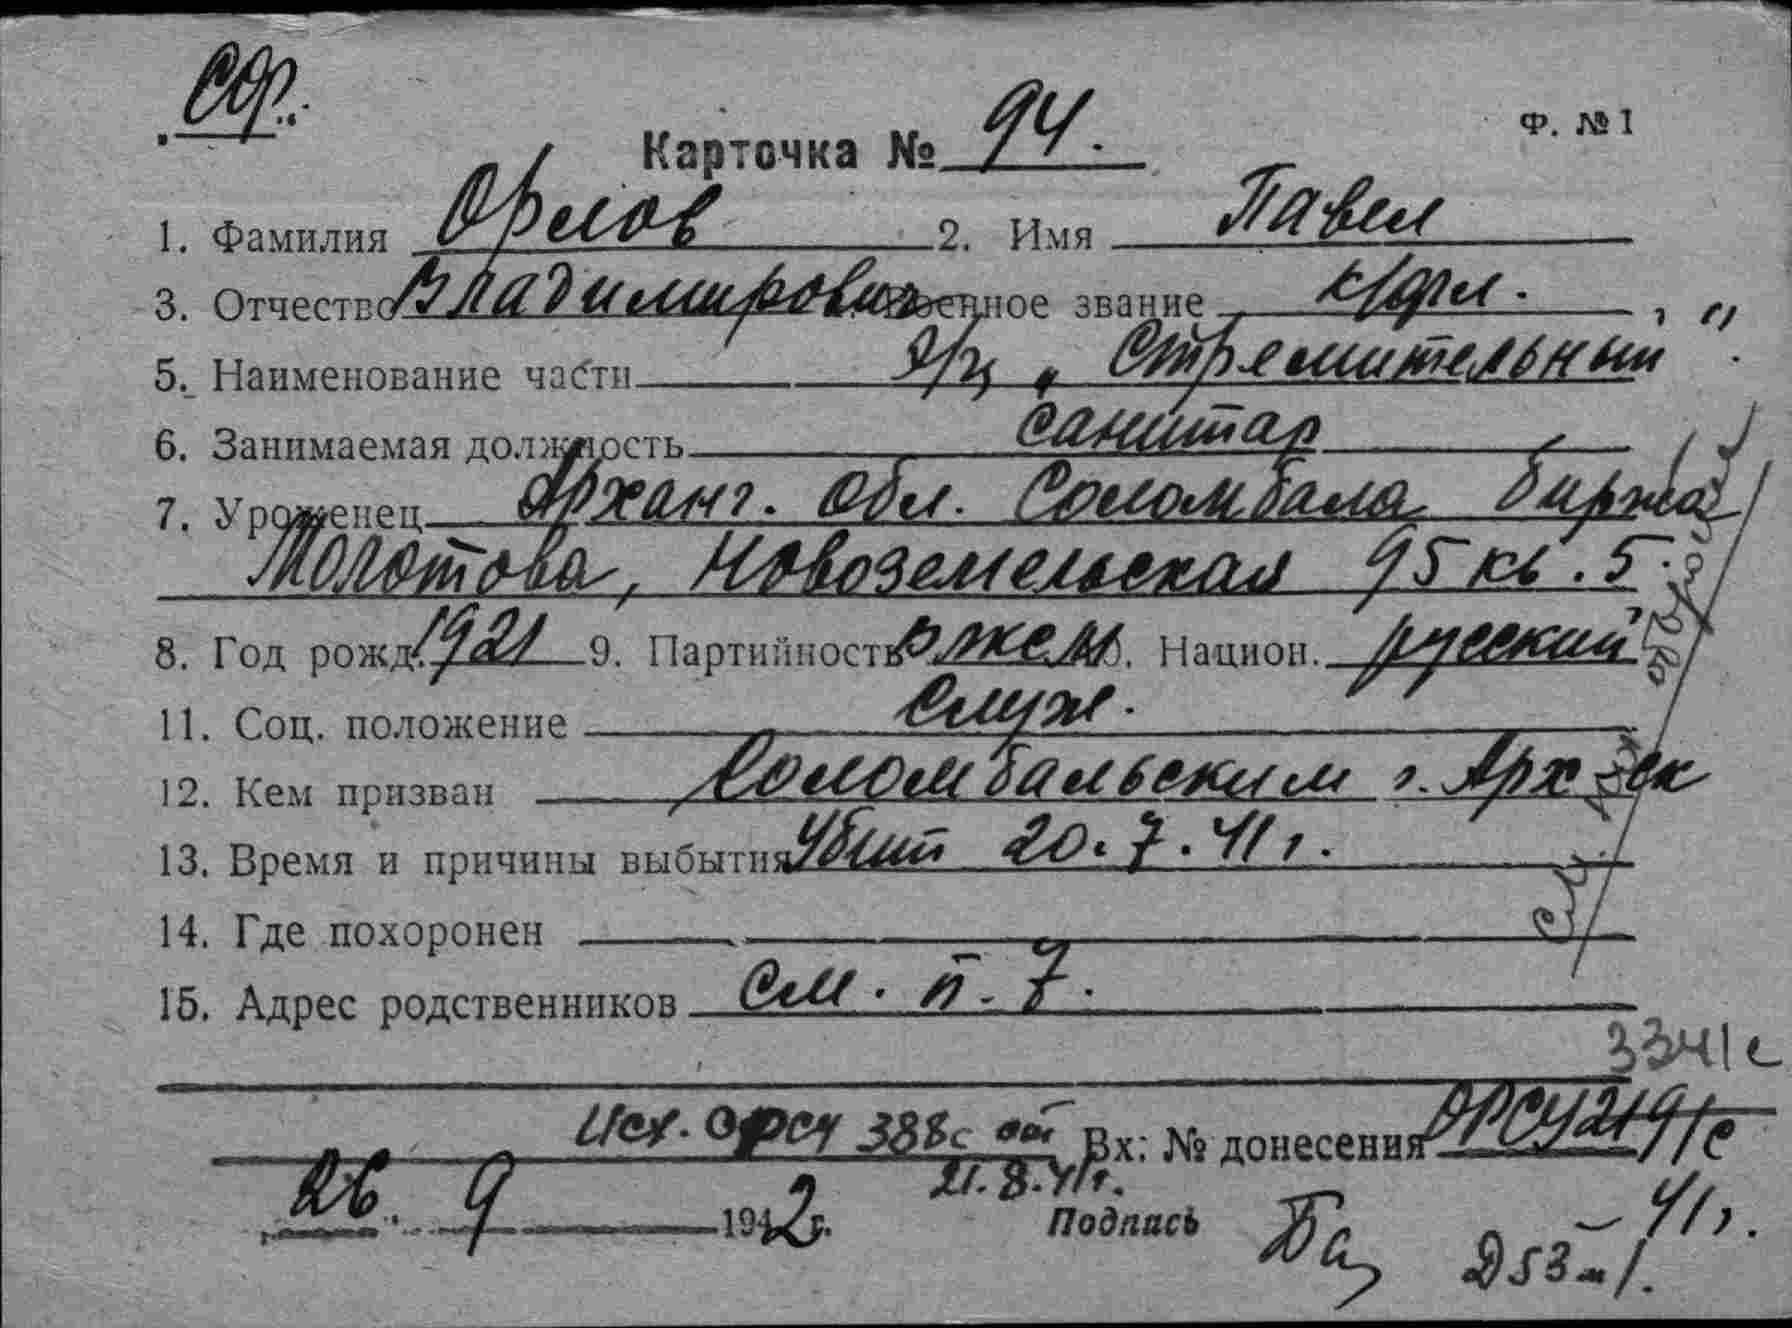 СФ.
Ф. №1
Карточка № 94.
1. Фамилия Орлов 2. Имя Павел
3. Отчество Владимирович военное звание к/фл.
5. Наименование части э/м „Стремительный"
6. Занимаемая должность санитар
7. Уроженец Арханг. обл. Соломбала биржа
Молотова, Новоземельская 95 кв. 5.
8. Год рожд. 1921 9. Партийность влксм 10. Национ. русский
11. Соц. положение служ.
12. Кем призван Соломбальским г. Арх-ск
13. Время и причины выбытия Убит 20.7.41 г.
14. Где похоронен
15. Адрес родственников См. п. 7.
3341с
Исх. ОРСУ 388с от Вх: № донесения ОРСУ 219/с
21.8.41г.
26. 9 1942 г. Подпись — 41г.